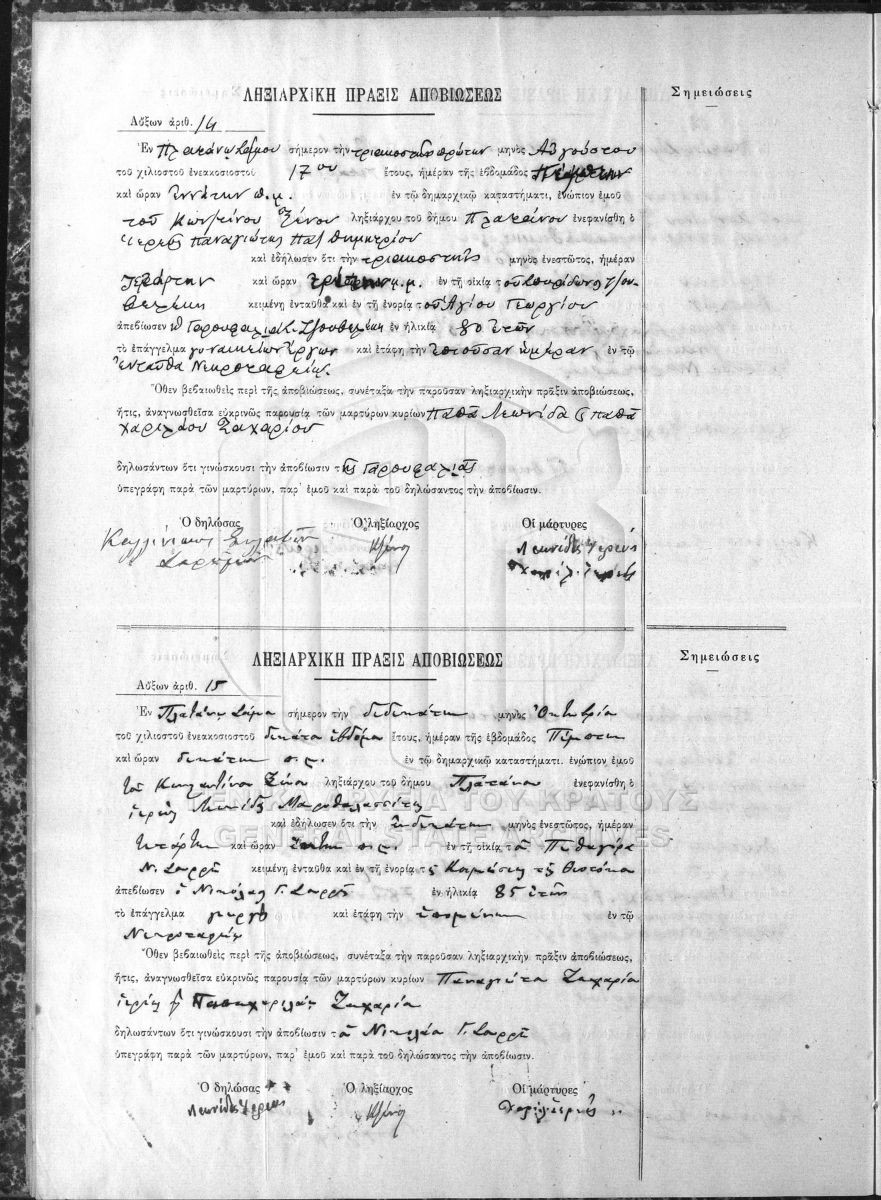 ΛΗΞΙΑΡΧΙΚΗ ΠΡΑΞΙΣ ΑΠΟΒΙΩΣΕΩΣ
Σημειώσεις
Αὔξων ἀριθ. 14
Ἐν Πλατάνῳ Σάμου σήμερον τὴν τριακοστὴν πρώτην μηνὸς Αὐγούστου
τοῦ χιλιοστοῦ ἐνεακοσιοστοῦ 17ου ἔτους, ἡμέραν τῆς ἑβδομάδος Πέμπτην
καὶ ὥραν ἐννάτην π.μ. ἐν τῷ δημαρχικῷ καταστήματι, ἐνώπιον ἐμοῦ
τοῦ Κωνσταντίνου Ξένου ληξιάρχου τοῦ δήμου Πλατάνου ἐνεφανίσθη ὁ
ἱερεὺς Παναγιώτης
καὶ ἐδήλωσεν ὅτι τὴν τριακοστὴν μηνὸς ἐνεστῶτος, ἡμέραν
Τετάρτην καὶ ὥραν τρίτην μ.μ. ἐν τῇ οἰκίᾳ τοῦ
κειμένῃ ἐνταῦθα καὶ ἐν τῇ ἐνορίᾳ τοῦ Ἁγίου Γεωργίου
ἀπεβίωσεν ἡ Γαρουφαλιὰ ἐν ἡλικίᾳ 80 ἐτῶν
τὸ ἐπάγγελμα γυναικείων ἔργων καὶ ἐτάφη τὴν ἐπιοῦσαν ἡμέραν ἐν τῷ
ἐνταῦθα Νεκροταφείῳ.
Ὅθεν βεβαιωθεὶς περὶ τῆς ἀποβιώσεως, συνέταξα τὴν παροῦσαν ληξιαρχικὴν πρᾶξιν ἀποβιώσεως,
ἥτις, ἀναγνωσθεῖσα εὐκρινῶς παρουσίᾳ τῶν μαρτύρων κυρίων παπᾶ Λεωνίδα παπᾶ
Χαριλάου Ζαχαρίου
δηλωσάντων ὅτι γινώσκουσι τὴν ἀποβίωσιν τῆς Γαρουφαλιᾶς
ὑπεγράφη παρὰ τῶν μαρτύρων, παρ' ἐμοῦ καὶ παρὰ τοῦ δηλώσαντος τὴν ἀποβίωσιν.
Ὁ δηλώσας Ὁ ληξίαρχος Οἱ μάρτυρες
Κξένος Λεωνίδας Ἱερεύς
ΛΗΞΙΑΡΧΙΚΗ ΠΡΑΞΙΣ ΑΠΟΒΙΩΣΕΩΣ
Σημειώσεις
Αὔξων ἀριθ. 15
Ἐν Πλατάνῳ Σάμου σήμερον τὴν δωδεκάτην μηνὸς Ὀκτωβρίου
τοῦ χιλιοστοῦ ἐνεακοσιοστοῦ δεκάτου ἑβδόμου ἔτους, ἡμέραν τῆς ἑβδομάδος Πέμπτην
καὶ ὥραν δεκάτην π.μ. ἐν τῷ δημαρχικῷ καταστήματι. ἐνώπιον ἐμοῦ
τοῦ Κωνσταντίνου Ξένου ληξιάρχου τοῦ δήμου Πλατάνου ἐνεφανίσθη ὁ
ἱερεὺς Λεωνίδας Μαυροθαλασσίτης
καὶ ἐδήλωσεν ὅτι τὴν ἑνδεκάτην μηνὸς ἐνεστῶτος, ἡμέραν
Τετάρτην καὶ ὥραν π.μ. ἐν τῇ οἰκίᾳ τοῦ Πυθαγόρα
Ν. Σαρρῆ κειμένῃ ἐνταῦθα καὶ ἐν τῇ ἐνορίᾳ τῆς Κοιμήσεως τῆς Θεοτόκου
ἀπεβίωσεν ὁ Νικόλαος Γ. Σαρρῆς ἐν ἡλικίᾳ 85 ἐτῶν
τὸ ἐπάγγελμα γεωργὸς καὶ ἐτάφη τὴν ἑπομένην ἐν τῷ
Νεκροταφείῳ
Ὅθεν βεβαιωθεὶς περὶ τῆς ἀποβιώσεως, συνέταξα τὴν παροῦσαν ληξιαρχικὴν πρᾶξιν ἀποβιώσεως,
ἥτις, ἀναγνωσθεῖσα εὐκρινῶς παρουσίᾳ τῶν μαρτύρων κυρίων Παναγιώτου Ζαχαρίου
ἱερέως Παπαχαριλάου Ζαχαρίου
δηλωσάντων ὅτι γινώσκουσι τὴν ἀποβίωσιν τοῦ Νικολάου Γ. Σαρρῆ
ὑπεγράφη παρὰ τῶν μαρτύρων, παρ' ἐμοῦ καὶ παρὰ τοῦ δηλώσαντος τὴν ἀποβίωσιν.
Ὁ δηλώσας Ὁ ληξίαρχος Οἱ μάρτυρες
Λεωνίδας Ἱερεύς Κξένος
ΓΕΝΙΚΑ ΑΡΧΕΙΑ ΤΟΥ ΚΡΑΤΟΥΣ
GENERAL STATE ARCHIVES